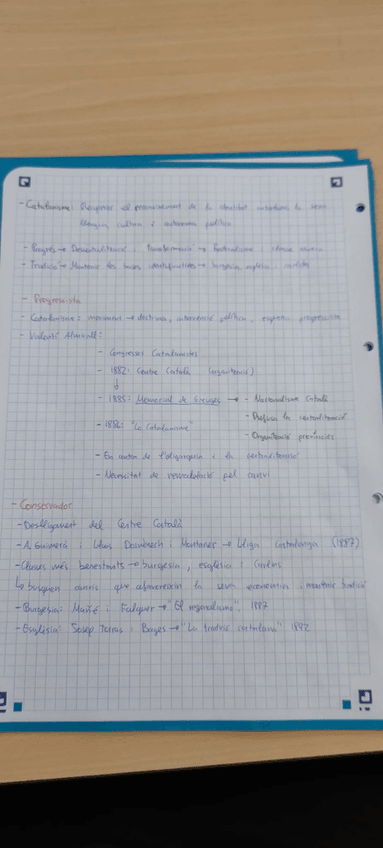 - Catalanisme: Recuperar el de la identitat catalana, la seva
llengua, cultura i autonomia política
- Progrés → Descentralització i transformació → Federalisme i
- Tradició → Mantenir les bases identificatives → burgesia, església, carlistes
- Progressista
- Catalanisme: moviment → destinat, intervenció política, progressista
- Valentí Almirall:
- Congressos Catalanistes
- 1882: Centre Català (organització)
↓
- 1885: Memorial de Greuges → - Nacionalisme Català
- la centralització
- 1886: "Lo Catalanisme"
- Organització províncies
- En contra de l'oligarquia i la centralització
- Necessitat de pel canvi
- Conservador
- Deslligament del Centre Català
- A. Guimerà i Lluís Domènech i Montaner → Lliga Catalunya (1887)
- Classes més benestants → burgesia, església i carlins
↳ busquen canvis que afavoreixin la seva economia i mantenir tradició
- Burgesia: Mañé i Flaquer → "El regionalismo", 1887
- Església: Josep Torras i Bages → "La tradició catalana" 1892